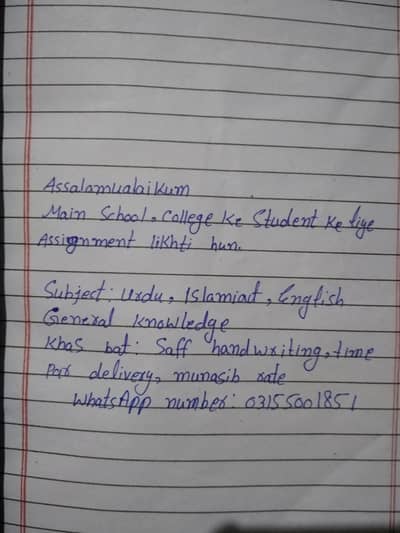 Assalamualaikum
Main School, College Ke Student Ke liye
Assignment likhti hun.
Subject: Urdu, Islamiat, English
General Knowledge
Khas bat: Saff handwriting, time
par delivery, munasib rate
WhatsApp number: 03155001851